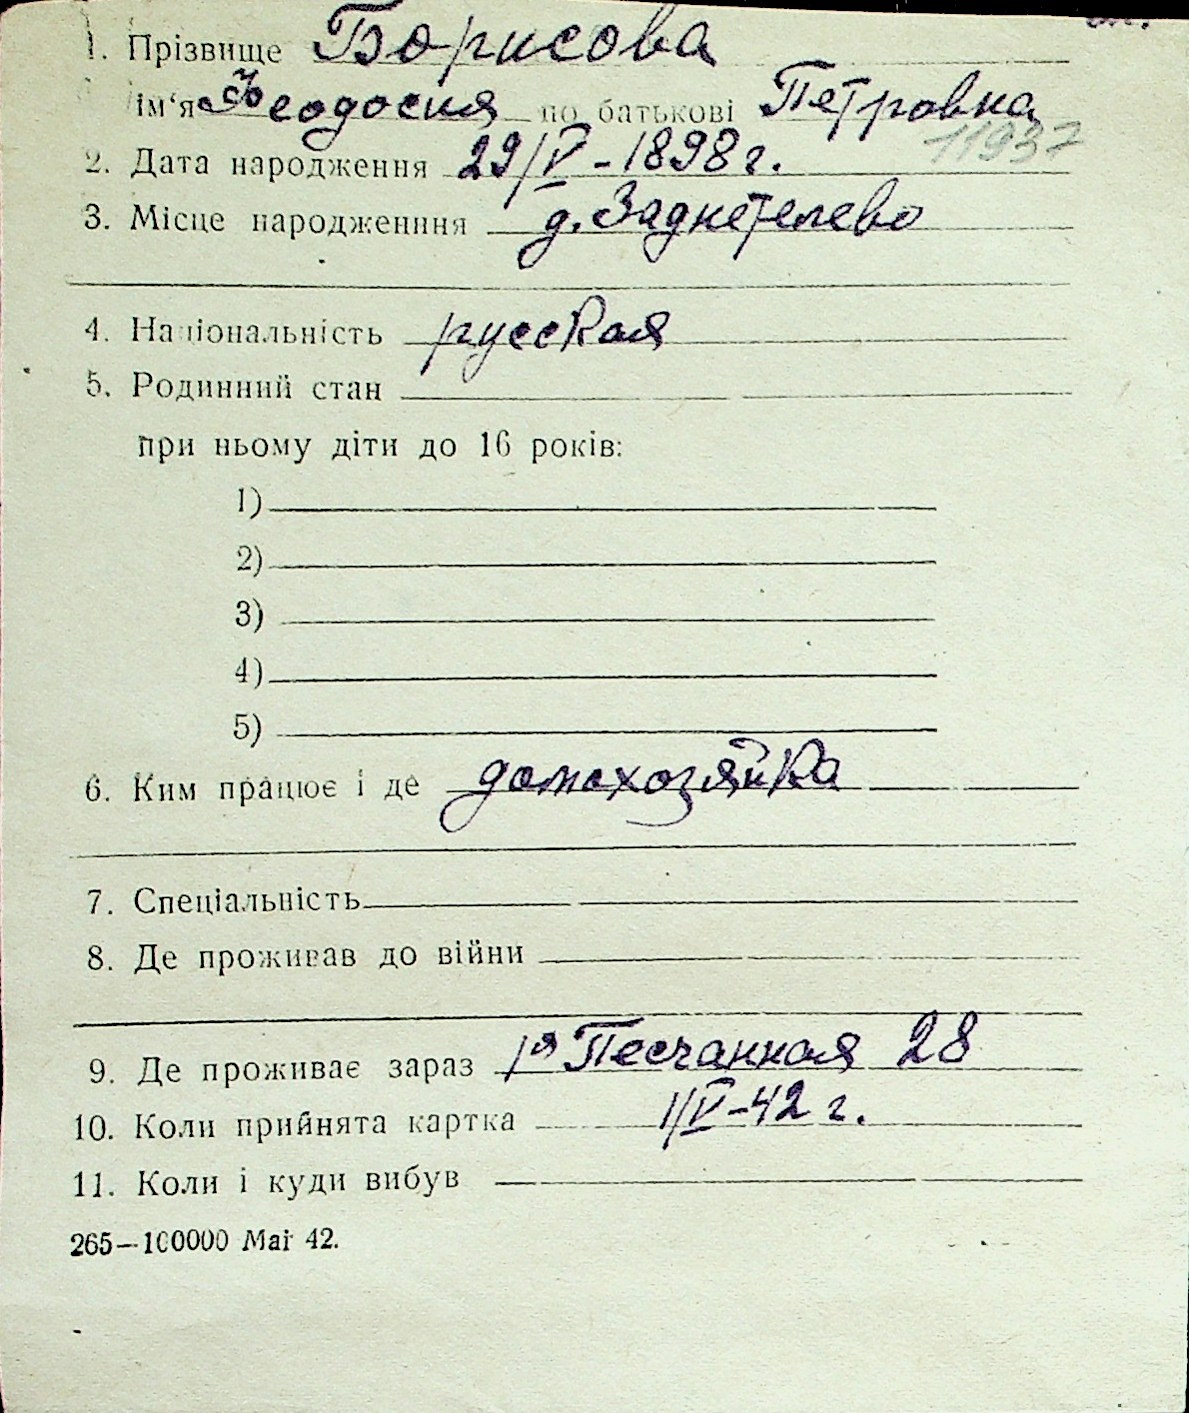 1. Прізвище Борисова
ім'я Феодосия по батькові Петровна
11937
2. Дата народження 29/V - 1898 г.
3. Місце народженння д. Заднетелево
4. Національність русская
5. Родинний стан
при ньому діти до 16 років:
1)
2)
3)
4)
5)
6. Ким працює і де домохозяйка
7. Спеціальність
8. Де проживав до війни
9. Де проживає зараз 1я Песчанная 28
10. Коли прийнята картка 1/V-42 г.
11. Коли і куди вибув
265—100000 Mai 42.